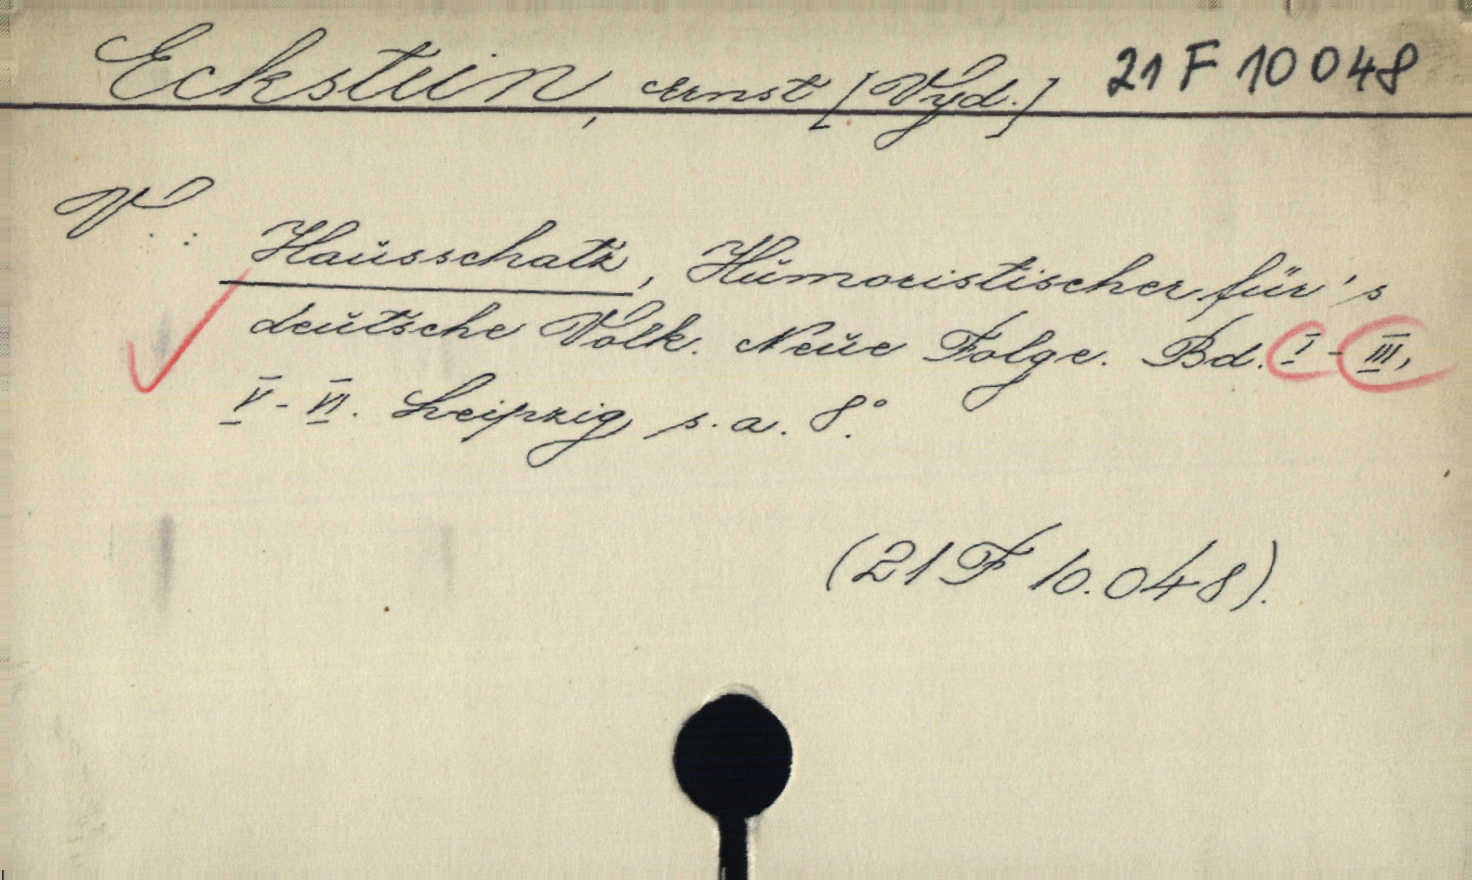 Eckstein, Ernst [Vyd.] 21 F 10048
V.:
Hausschatz, Humoristischer für's
deutsche Volk. Neue Folge. Bd. I - III,
V - VI. Leipzig, s. a. 8°.
(21 F 10.048).